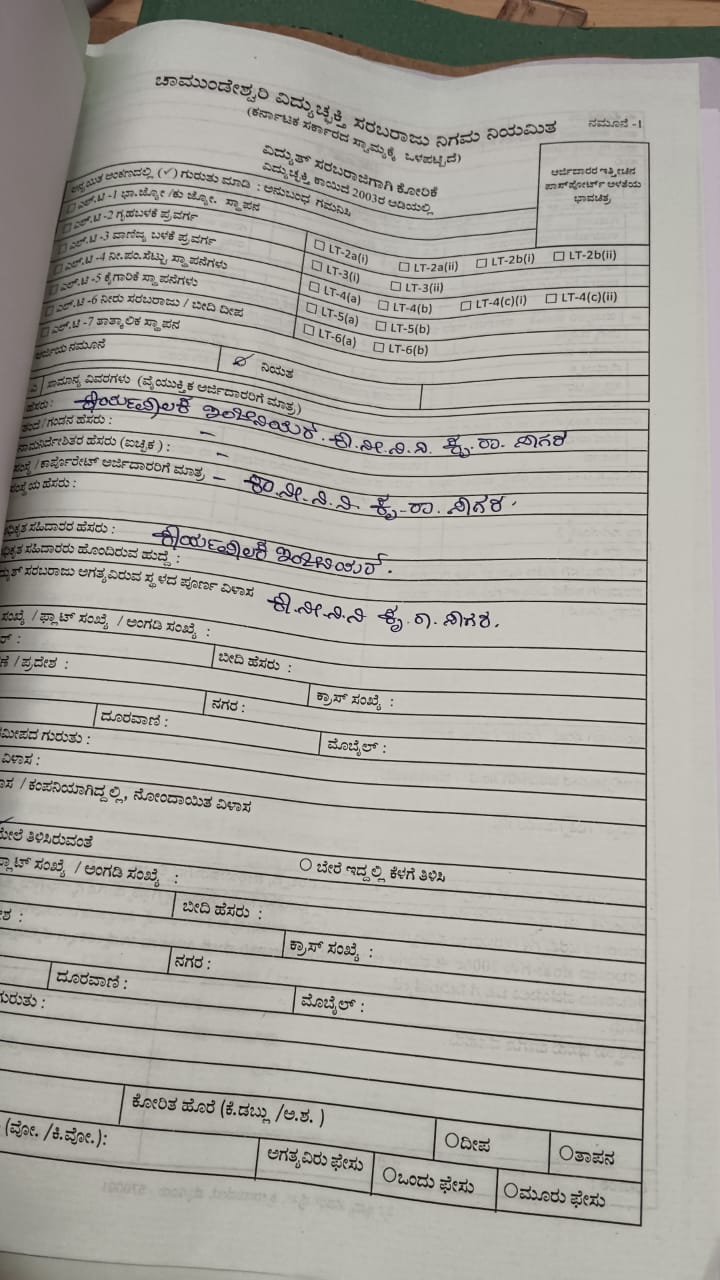 ಚಾಮುಂಡೇಶ್ವರಿ ವಿದ್ಯುಚ್ಛಕ್ತಿ ಸರಬರಾಜು ನಿಗಮ ನಿಯಮಿತ
ನಮೂನೆ -1
(ಕರ್ನಾಟಕ ಸರ್ಕಾರದ ಸ್ವಾಮ್ಯಕ್ಕೆ ಒಳಪಟ್ಟಿದೆ)
ವಿದ್ಯುತ್ ಸರಬರಾಜಿಗಾಗಿ ಕೋರಿಕೆ
ವಿದ್ಯುಚ್ಛಕ್ತಿ ಕಾಯಿದೆ 2003ರ ಅಡಿಯಲ್ಲಿ
ಅರ್ಜಿದಾರರ ಇತ್ತೀಚಿನ
ಪಾಸ್‌ಪೋರ್ಟ್ ಅಳತೆಯ
ಭಾವಚಿತ್ರ
ಅನ್ವಯಿತ ಅಂಕಣದಲ್ಲಿ (✓) ಗುರುತು ಮಾಡಿ : ಅನುಬಂಧ ಗಮನಿಸಿ
☐ ಎಲ್.ಟಿ -1 ಭಾ.ಜ್ಯೋ /ಕು ಜ್ಯೋ. ಸ್ಥಾಪನ
☐ ಎಲ್.ಟಿ -2 ಗೃಹಬಳಕೆ ಪ್ರವರ್ಗ ☐ LT-2a(i) ☐ LT-2a(ii) ☐ LT-2b(i) ☐ LT-2b(ii)
☐ ಎಲ್.ಟಿ -3 ವಾಣಿಜ್ಯ ಬಳಕೆ ಪ್ರವರ್ಗ ☐ LT-3(i) ☐ LT-3(ii)
☐ ಎಲ್.ಟಿ -4 ನೀ.ಪಂ.ಸೆಟ್ಟು ಸ್ಥಾಪನೆಗಳು ☐ LT-4(a) ☐ LT-4(b) ☐ LT-4(c)(i) ☐ LT-4(c)(ii)
☐ ಎಲ್.ಟಿ -5 ಕೈಗಾರಿಕೆ ಸ್ಥಾಪನೆಗಳು ☐ LT-5(a) ☐ LT-5(b)
☐ ಎಲ್.ಟಿ -6 ನೀರು ಸರಬರಾಜು / ಬೀದಿ ದೀಪ ☐ LT-6(a) ☐ LT-6(b)
☐ ಎಲ್.ಟಿ -7 ತಾತ್ಕಾಲಿಕ ಸ್ಥಾಪನ
ಅರ್ಜಿಯ ನಮೂನೆ ನಿಯತ
ಎ ಸಾಮಾನ್ಯ ವಿವರಗಳು (ವೈಯುಕ್ತಿಕ ಅರ್ಜಿದಾರರಿಗೆ ಮಾತ್ರ)
ಹೆಸರು : ಕಾರ್ಯಪಾಲಕ ಇಂಜಿನಿಯರ್. ಕಾ.ನೀ.ನಿ.ನಿ ಕೃ. ರಾ. ಸಾಗರ
ತಂದೆ/ಗಂಡನ ಹೆಸರು : –
ನಾಮನಿರ್ದೇಶಿತರ ಹೆಸರು (ಐಚ್ಛಿಕ) : –
ಸಂಸ್ಥೆ/ಕಾರ್ಪೊರೇಟ್ ಅರ್ಜಿದಾರರಿಗೆ ಮಾತ್ರ – ಕಾ.ನೀ.ನಿ.ನಿ. ಕೃ.ರಾ. ಸಾಗರ.
ಸಂಸ್ಥೆಯ ಹೆಸರು :
ಅಧಿಕೃತ ಸಹಿದಾರರ ಹೆಸರು : ಕಾರ್ಯಪಾಲಕ ಇಂಜಿನಿಯರ್.
ಅಧಿಕೃತ ಸಹಿದಾರರು ಹೊಂದಿರುವ ಹುದ್ದೆ :
ಸರಬರಾಜು ಅಗತ್ಯವಿರುವ ಸ್ಥಳದ ಪೂರ್ಣ ವಿಳಾಸ ಕಾ.ನೀ.ನಿ.ನಿ ಕೃ. ರಾ. ಸಾಗರ.
ಸಂಖ್ಯೆ /ಫ್ಲಾಟ್ ಸಂಖ್ಯೆ / ಅಂಗಡಿ ಸಂಖ್ಯೆ :
ಬೀದಿ ಹೆಸರು :
/ಪ್ರದೇಶ : ಕ್ರಾಸ್ ಸಂಖ್ಯೆ :
ನಗರ :
ದೂರವಾಣಿ : ಮೊಬೈಲ್ :
ಸಮೀಪದ ಗುರುತು :
ವಿಳಾಸ :
/ಕಂಪನಿಯಾಗಿದ್ದಲ್ಲಿ, ನೋಂದಾಯಿತ ವಿಳಾಸ
ಮೇಲೆ ತಿಳಿಸಿರುವಂತೆ ○ ಬೇರೆ ಇದ್ದಲ್ಲಿ ಕೆಳಗೆ ತಿಳಿಸಿ
ಫ್ಲಾಟ್ ಸಂಖ್ಯೆ / ಅಂಗಡಿ ಸಂಖ್ಯೆ :
ಬೀದಿ ಹೆಸರು :
ಕ್ರಾಸ್ ಸಂಖ್ಯೆ :
ನಗರ :
ದೂರವಾಣಿ : ಮೊಬೈಲ್ :
ಗುರುತು :
ಕೋರಿತ ಹೊರೆ (ಕೆ.ಡಬ್ಲು /ಅ.ಶ. ) ○ದೀಪ ○ತಾಪನ
(ವೋ. /ಕಿ.ವೋ.): ಅಗತ್ಯವಿರು ಫೇಸು ○ಒಂದು ಫೇಸು ○ಮೂರು ಫೇಸು